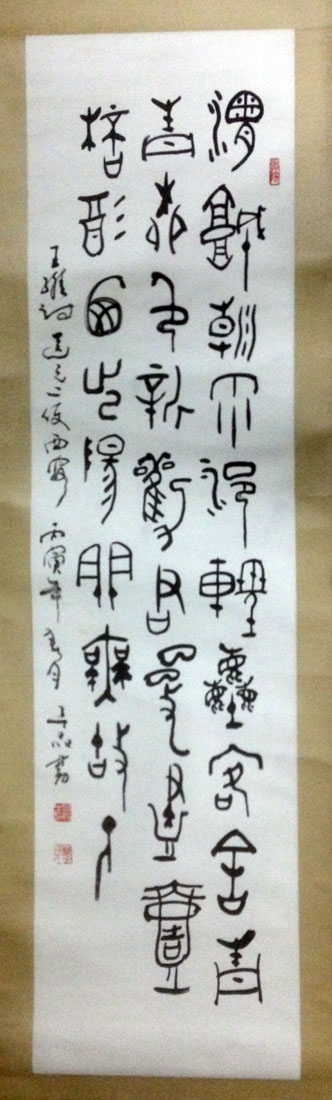 渭城朝雨浥輕塵客舍青
青柳色新勸君更盡壹
杯酒西出陽關無故人
王維詩送元二使西安 丙寅年春月 書